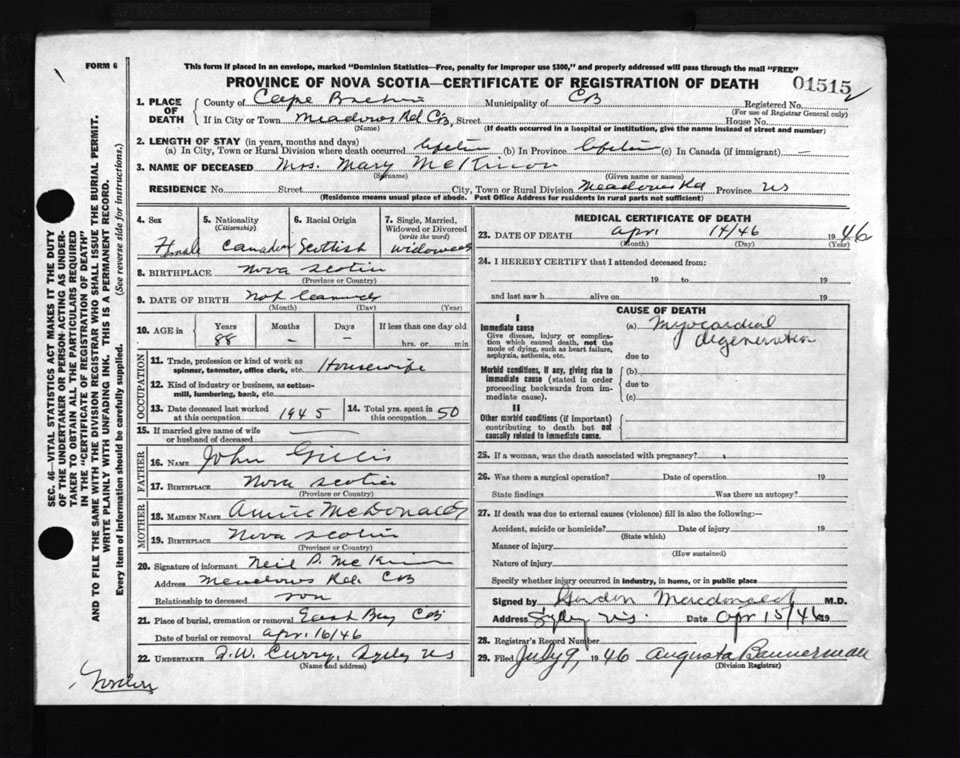 FORM 6
This form if placed in an envelope, marked "Dominion Statistics—Free, penalty for improper use $300," and properly addressed will pass through the mail "FREE"
PROVINCE OF NOVA SCOTIA—CERTIFICATE OF REGISTRATION OF DEATH
01515
1. PLACE OF DEATH
County of Cape Breton Municipality of CB Registered No.
(For use of Registrar General only)
If in City or Town Meadows Rd CB, Street House No.
(Name) (If death occurred in a hospital or institution, give the name instead of street and number)
2. LENGTH OF STAY (in years, months and days)
(a) In City, Town or Rural Division where death occurred Lifetime (b) In Province Lifetime (c) In Canada (if immigrant) —
3. NAME OF DECEASED Mrs. Mary McKinnon
(Surname) (Given name or names)
RESIDENCE No. Street City, Town or Rural Division Meadows Rd Province NS
(Residence means usual place of abode. Post Office Address for residents in rural parts not sufficient)
4. Sex
Female
5. Nationality
(Citizenship)
Canadian
6. Racial Origin
Scottish
7. Single, Married, Widowed or Divorced
(write the word)
widowed
8. BIRTHPLACE Nova Scotia
(Province or Country)
9. DATE OF BIRTH Not learned
(Month) (Day) (Year)
10. AGE in
Years Months Days If less than one day old
88 – – hrs. or min.
OCCUPATION
11. Trade, profession or kind of work as spinner, teamster, office clerk, etc. Housewife
12. Kind of industry or business, as cotton-mill, lumbering, bank, etc.
13. Date deceased last worked at this occupation 1945
14. Total yrs. spent in this occupation 50
15. If married give name of wife or husband of deceased —
FATHER
16. NAME John Gillis
17. BIRTHPLACE Nova Scotia
(Province or Country)
MOTHER
18. MAIDEN NAME Annie McDonald
19. BIRTHPLACE Nova Scotia
(Province or Country)
20. Signature of informant Neil D. McKinnon
Address Meadows Rd. CB
Relationship to deceased son
21. Place of burial, cremation or removal East Bay CB
Date of burial or removal Apr. 16/46
22. UNDERTAKER Curry, Sydney NS
(Name and address)
MEDICAL CERTIFICATE OF DEATH
23. DATE OF DEATH Apr. 14/46 1946
(Month) (Day) (Year)
24. I HEREBY CERTIFY that I attended deceased from:
19 to 19
and last saw h alive on 19
CAUSE OF DEATH
I
Immediate cause
Give disease, injury or complication which caused death, not the mode of dying, such as heart failure, asphyxia, asthenia, etc.
(a) Myocardial degeneration
due to
Morbid conditions, if any, giving rise to immediate cause (stated in order proceeding backwards from immediate cause).
(b)
due to
(c)
II
Other morbid conditions (if important) contributing to death but not causally related to immediate cause.
25. If a woman, was the death associated with pregnancy?
26. Was there a surgical operation? Date of operation 19
State findings Was there an autopsy?
27. If death was due to external causes (violence) fill in also the following:—
Accident, suicide or homicide? Date of injury 19
(State which)
Manner of injury
(How sustained)
Nature of injury
Specify whether injury occurred in industry, in home, or in public place
Signed by Gordon Macdonald M.D.
Address Sydney N.S. Date Apr 15/46 19
28. Registrar's Record Number
29. Filed July 9, 1946 Augusta Bannerman
(Division Registrar)
SEC. 46—VITAL STATISTICS ACT MAKES IT THE DUTY
OF THE UNDERTAKER OR PERSON ACTING AS UNDER-
TAKER TO OBTAIN ALL THE PARTICULARS REQUIRED
IN THE "CERTIFICATE OF REGISTRATION OF DEATH"
AND TO FILE THE SAME WITH THE DIVISION REGISTRAR WHO SHALL ISSUE THE BURIAL PERMIT.
WRITE PLAINLY WITH UNFADING INK. THIS IS A PERMANENT RECORD.
Every item of information should be carefully supplied. (See reverse side for instructions.)